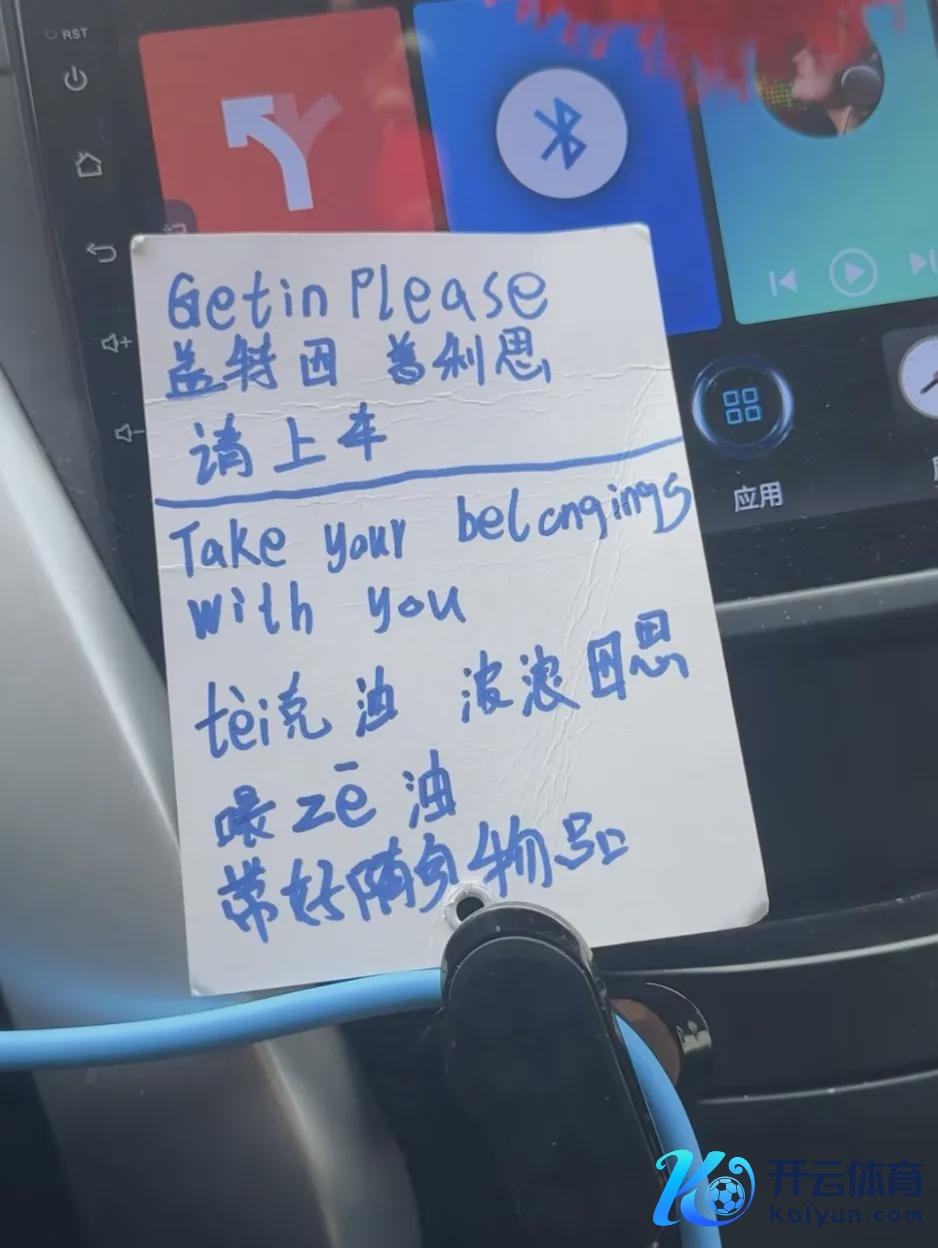 RST
Getin Please
盖特因 普利思
请上车
Take your belongings
with you
tèi克 油 波浪因思
喂zē油
带好随身物品
应用
开云体育
Kaiyun.com